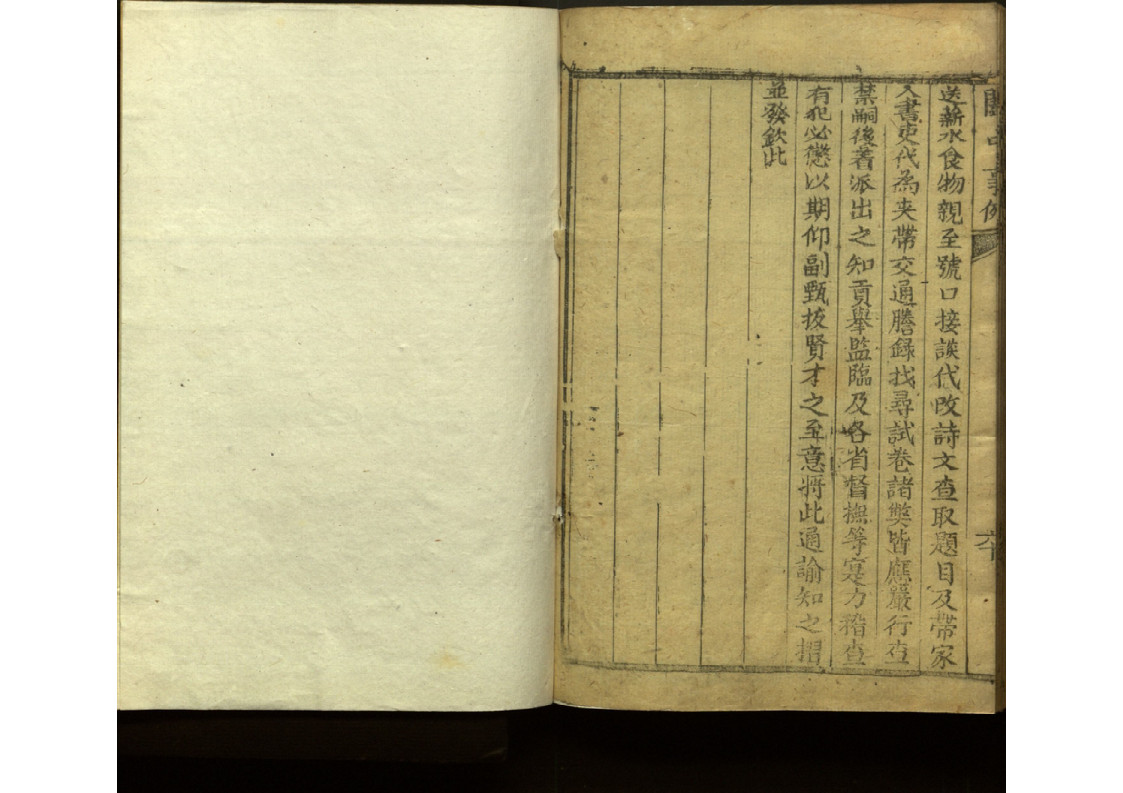 闈中事例
六十
送薪水食物親至號口接談代改詩文查取題目及帶家
人書吏代為夾帶交通謄録找尋試卷諸獘皆應嚴行查
禁嗣後著派出之知貢舉監臨及各省督撫等寔力稽查
有犯必懲以期仰副甄拔賢才之至意將此通諭知之摺
並發欽此